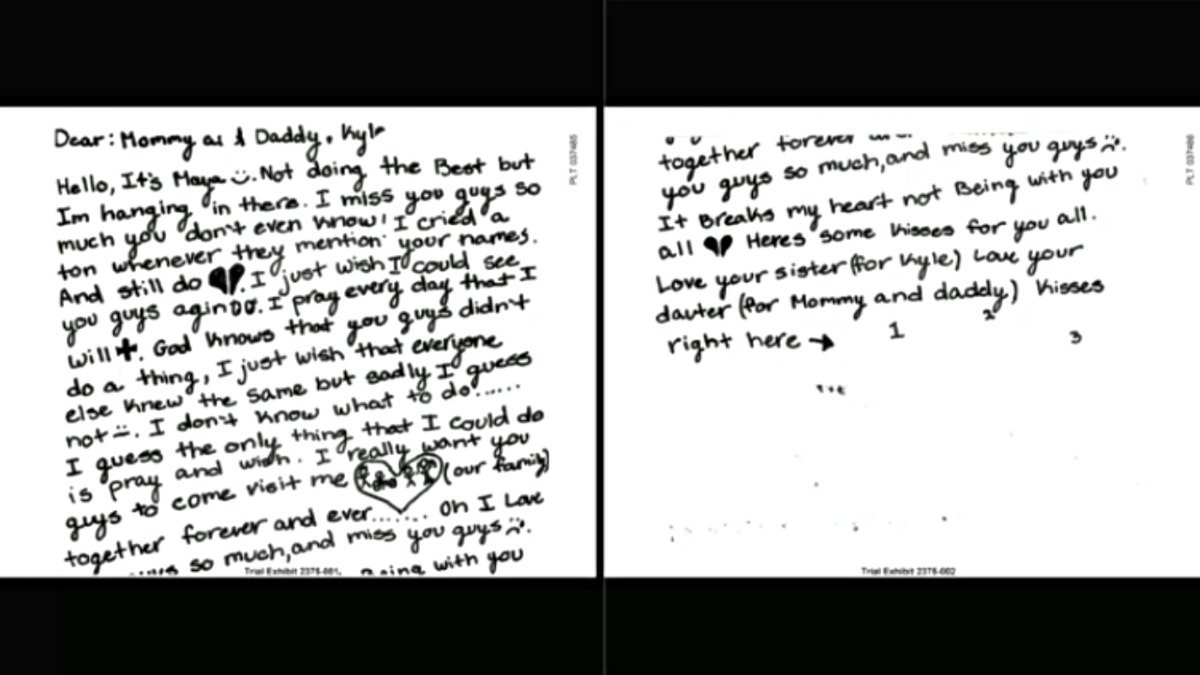 Dear: Mommy and Daddy, Kyle
Hello, It's Maya. Not doing the Best but
Im hanging in there. I miss you guys so
much you don't even know! I cried a
ton whenever they mention your names.
And still do. I just wish I could see
you guys agin. I pray every day that I
will. God knows that you guys didn't
do a thing, I just wish that everyone
else knew the same but sadly I guess
not. I don't know what to do......
I guess the only thing that I could do
is pray and wish. I really want you
guys to come visit me (our family)
together forever and ever....... Oh I Love
so much, and miss you guys.
Being with you
Trial Exhibit 2375-001
PLT 037465
together forever
you guys so much, and miss you guys.
It Breaks my heart not Being with you
all Heres some kisses for you all.
Love your sister (for Kyle) Love your
dauter (for Mommy and daddy) Kisses
right here → 1 2 3
Trial Exhibit 2375-002
PLT 037466